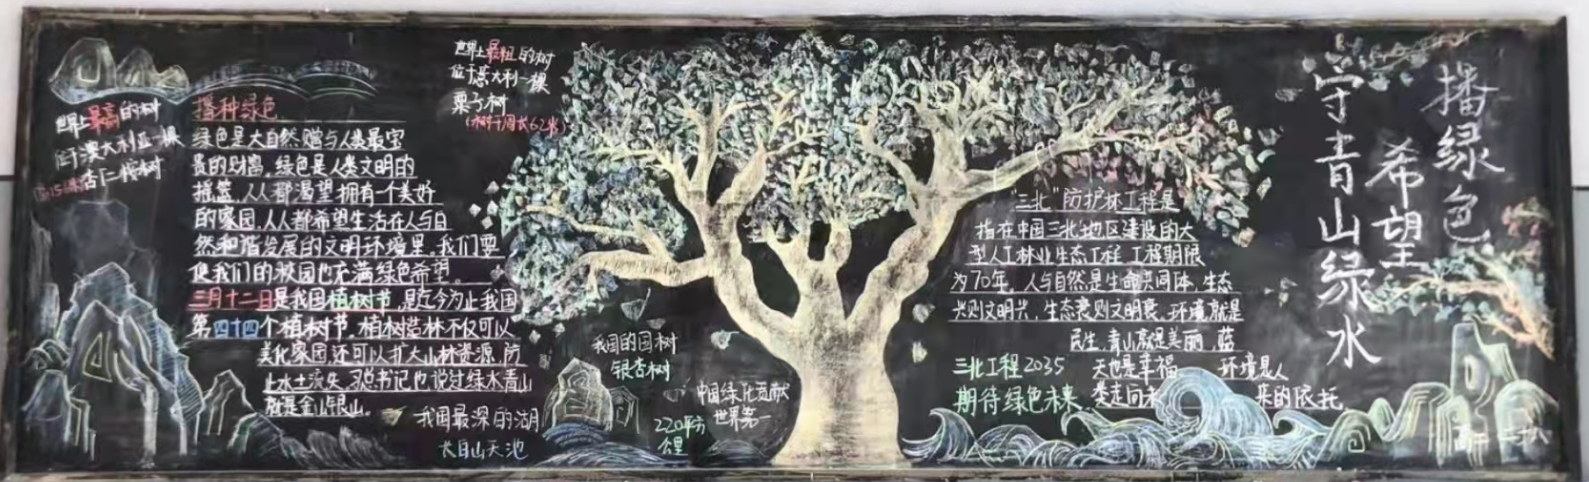 播绿色
希望
守青山绿水
世界上最高的树
位于澳大利亚一棵
杏仁桉树
播种绿色
绿色是大自然赠与人类最宝
贵的财富，绿色是人类文明的
摇篮，人人都渴望拥有一个美好
的家园，人人都希望生活在人与自
然和谐发展的文明环境里，我们要
使我们的校园也充满绿色希望。
三月十二日是我国植树节，是迄今为止我国
第四十四个植树节，植树造林不仅可以
美化家园还可以扩大山林资源，防
止水土流失，习总书记也说过绿水青山
就是金山银山。
世界上最粗的树
位于意大利一棵
栗子树
(树干周长62米)
我国最深的湖
长白山天池
我国的国树
银杏树
中国绿化贡献
世界第一
220平方
公里
"三北"防护林工程是
指在中国三北地区建设的大
型人工林业生态工程 工程期限
为70年。人与自然是生命共同体，生态
兴则文明兴，生态衰则文明衰，环境就是
民生，青山就是美丽，蓝
天也是幸福
环境是人
类走向未
来的依托
三北工程2035
期待绿色未来